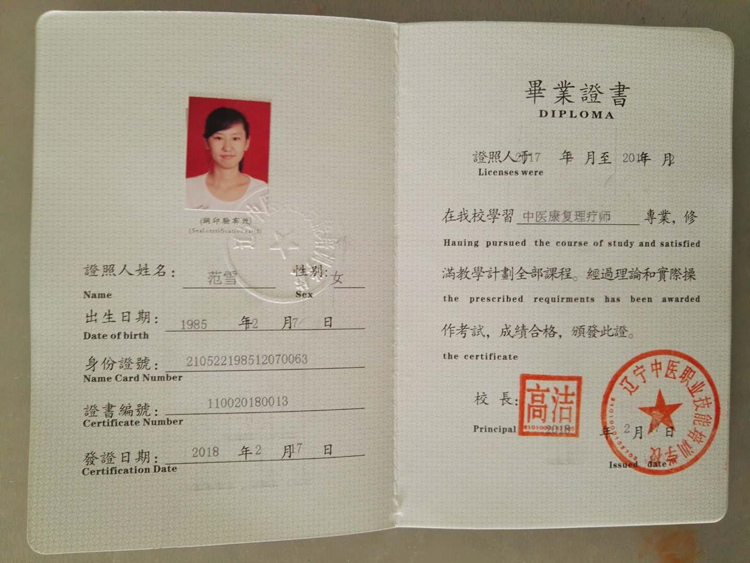 (鋼印驗系効)
證照人姓名： 范雪 性別: 女
Name Sex
出生日期： 1985 年2 月7 日
Date of birth
身份證號： 210522198512070063
Name Card Number
證書編號： 110020180013
Certificate Number
發證日期： 2018 年2 月17 日
Certification Date
畢業證書
DIPLOMA
證照人于 17 年 月至 201 年 月2
Licenses were
在我校學習 中医康复理疗师 專業，修
Hauing pursued the course of study and satisfied
滿教學計劃全部課程。經過理論和實際操
the prescribed requirments has been awarded
作考試，成績合格，頒發此證。
the certificate
校長： 高洁
Principal 2018 年 2 月 日
Issued date
辽宁中医职业技能培训学校